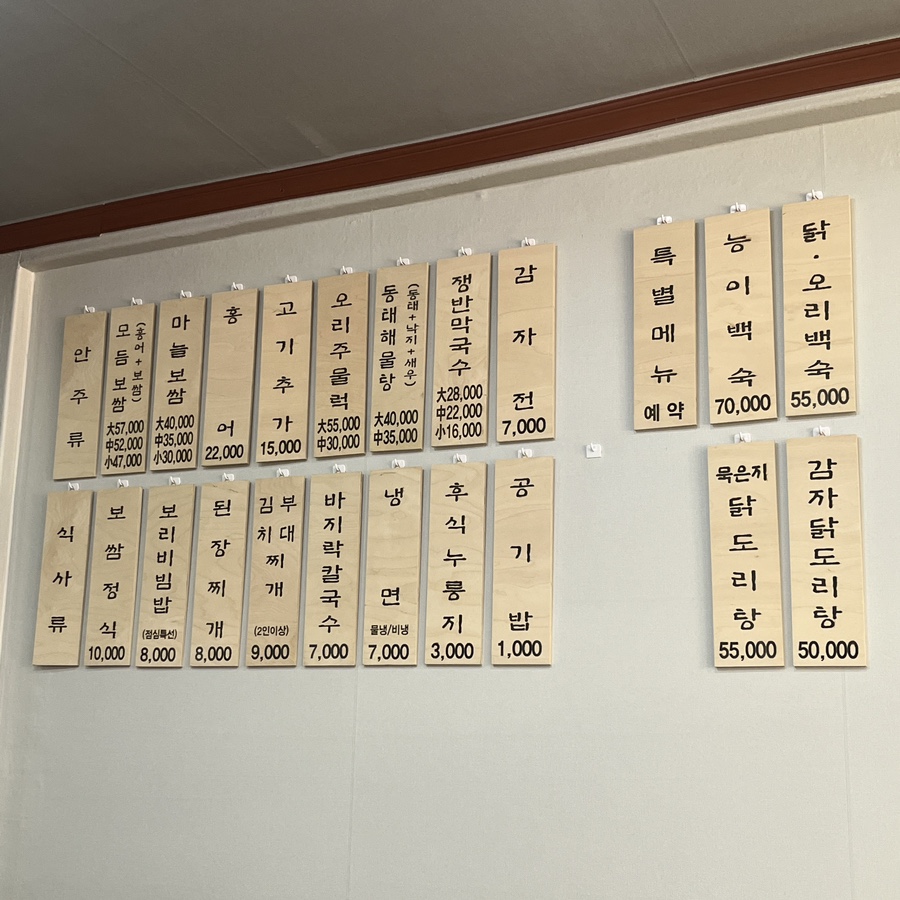 안주류
모듬보쌈
(홍어+보쌈)
大57,000
中52,000
小47,000
마늘보쌈
大40,000
中35,000
小30,000
홍어
22,000
고기추가
15,000
오리주물럭
大55,000
中30,000
동태해물탕
(동태+낙지+새우)
大40,000
中35,000
쟁반막국수
大28,000
中22,000
小16,000
감자전
7,000
식사류
보쌈정식
10,000
보리비빔밥
(점심특선)
8,000
된장찌개
8,000
김치
부대
찌개
(2인이상)
9,000
바지락칼국수
7,000
냉면
물냉/비냉
7,000
후식누룽지
3,000
공기밥
1,000
특별메뉴
예약
능이백숙
70,000
닭·오리백숙
55,000
묵은지
닭도리탕
55,000
감자닭도리탕
50,000